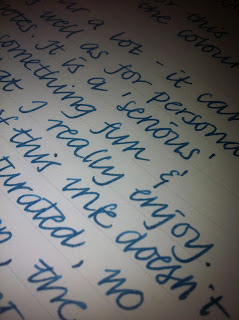 for this
the colour
a lot - it can
well as for persona
notes. It is a 'serious'
something fun &
at I really enjoy.
f this ink doesn't
turated, no
n, the